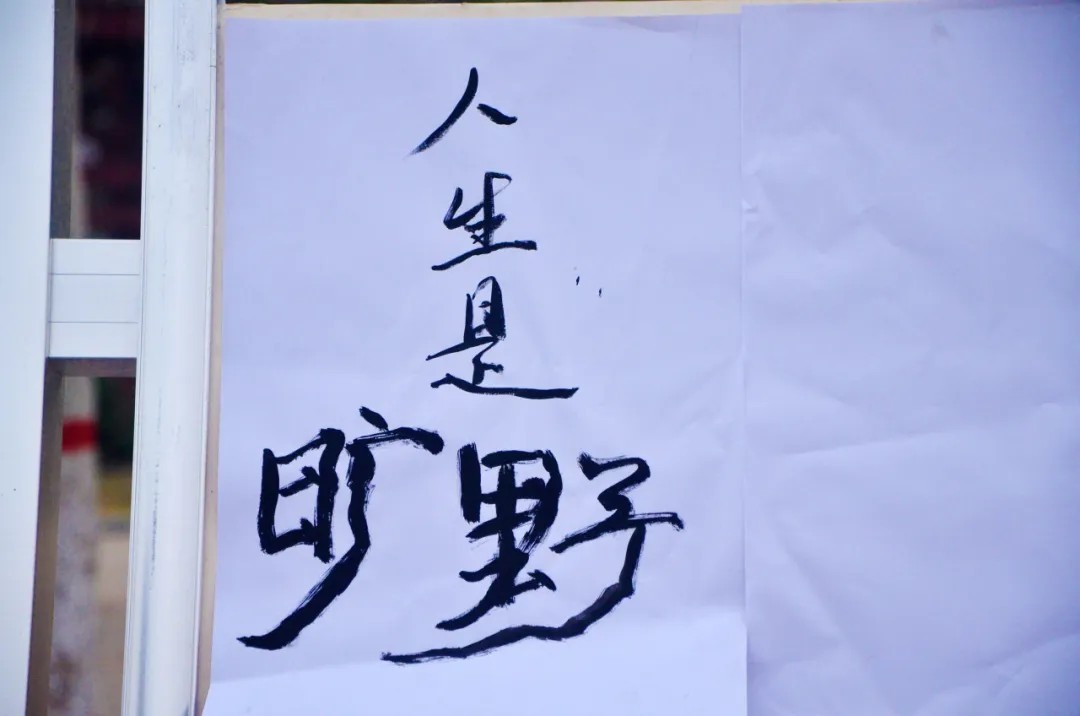 人
生
是
旷野